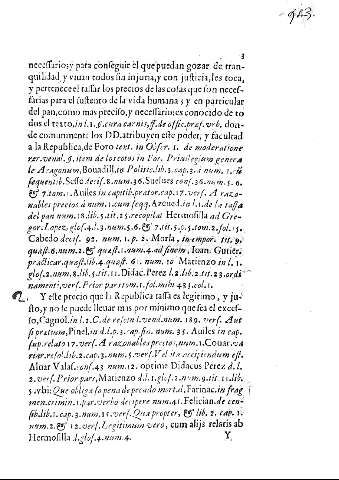 3
necessarios; y para conseguir el que puedan gozar de tran-
quilidad, y viuan todos sin injuria, y con justicia, les toca,
y pertenece el tassar los precios de las cosas que son neces-
sarias para el sustento de la vida humana; y en particular
del pan, como mas preciso, y necessario: es conocido de to
dos el texto, in l. 1. §. cura carnis, ff. de offic. præf. vrb. don-
de comunmente los DD. atribuyen este poder, y facultad
a la Republica, de Foro text. in Obser. 1. de moderatione
rer. venal. §. item de los cotos in For. Priuilegium genera
le Aragonum, Bouadill. in Politic. lib. 3. cap. 3. a num. 1.
sequentib. Sesse decis. 8. num. 36. Suelues cons. 36. num. 5. 6.
& 7. tom. 1. Auiles in cap. tib. prator. cap. 17. vers. A razo-
nables precios a num. 1. cum seqq. Azeued. in l. 1. de la tassa
del pan num. 18. lib. 5. tit. 25. recopilat. Hermosilla ad Gre-
gor. Lopez, glos. 4. l. 3. num. 5. 6. & 7. tit. 5. p. 5. tom. 2. fol. 15.
Cabedo decis. 92. num. 1. p. 2. Morla, in empor. tit. 9.
quæst. 6. num. 2. & quæst. 1. num. 4. ad finem, Ioann. Gutier.
practicar. quæst. lib. 4. quæst. 61. num. 10. Matienzo in l. 1.
glos. 2. num. 8. lib. 5. tit. 11. Didac. Perez l. 2. lib. 2. tit. 23. ordi
namenti, vers. Prior pars tom. 1. fol. mihi 483. col. 1.
2. Y este precio que la Republica tassa es legitimo, y ju-
sto, y no le puede lleuar mas por minimo que sea el exces-
so, Cagnol. in l. 2. C. de rescin. vend. num. 189. vers. Aut
for estum, Pinel. in d. l. 2. cap. fin. num. 35. Auiles in cap.
sup. relato 17. vers. A razonables precios, num. 1. Couar. va
riar. resol. lib. 2. cap. 3. num. 5. vers. Vel ita recipiendum est.
Aluar Valas. cons. 43. num. 12. optime Didacus Perez d. l.
2. vers. Prior pars, Matienzo d. l. 1. glos. 2. num. 9. tit. 11. lib.
5. vbi: Que obliga so pena de pecado mortal, Farinac. in frag
men. crimin. 1. par. verbo decipere num. 41. Felician. de cen-
sib. lib. 1. cap. 3. num. 15. vers. Qua propter, & lib. 2. cap. 1.
num. 2. & 12. vers. Legitimum vero, cum alijs relatis ab
Hermosilla d. glos. 4. num. 4.
Y